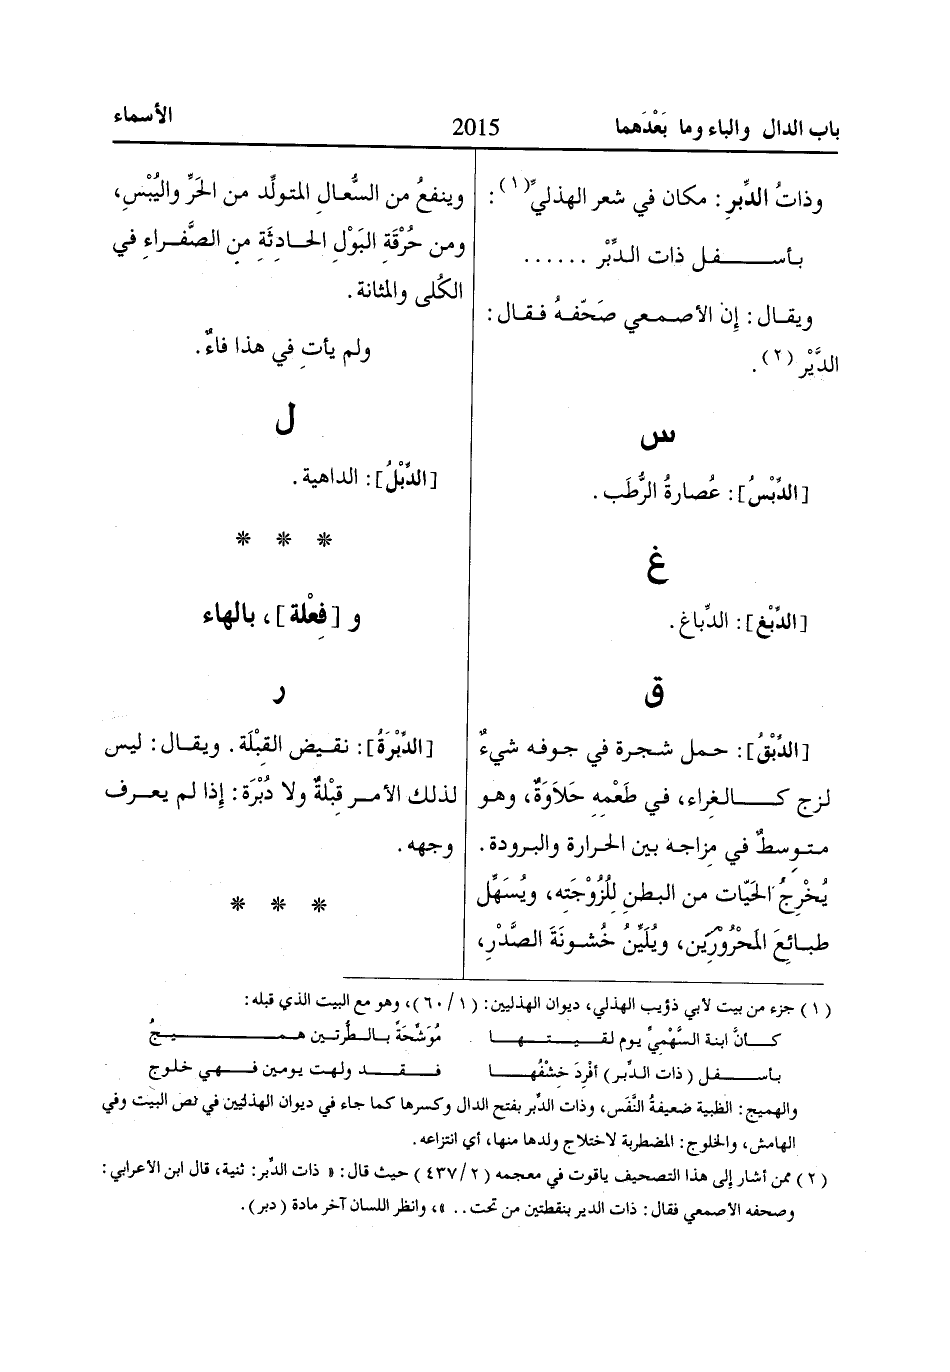 باب الدال والباء وما بَعْدَهما
2015
الأسماء
وذاتُ الدِّبر : مكان في شعر الهذليِّ(١) :
بأسـفل ذات الدِّبْر . . . . . .
ويقال : إن الأصمعي صَحّفهُ فقال :
الدَّيْر (٢) .
س
[الدِّبْسُ] : عُصارةُ الرُّطَب .
غ
[الدِّبْغ] : الدِّباغ .
ق
[الدِّبْقُ] : حمل شجرة في جوفه شيءٌ
لزج كالغراء، في طَعْمِهِ حَلَاوَةٌ، وهو
متوسطٌ في مِزاجه بين الحرارة والبرودة .
يُخْرِجُ الحَيّات من البطنِ لِلُزُوْجَتِه، ويُسَهِّل
طبائعَ المَحْرُوْرِين، ويُلَيِّنُ خُشونَةَ الصَّدْرِ،
وينفعُ من السُّعال المتولِّد من الحَرِّ واليُبْسِ،
ومن حُرْقَةِ البَوْل الحادِثَةِ من الصَّفراء في
الكُلى والمثانة .
ولم يأتِ في هذا فاءٌ .
ل
[الدِّبْلُ] : الداهية .
* * *
و [فِعْلة]، بالهاء
ر
[الدِّبْرَةُ] : نقيض القِبْلَة . ويقال : ليس
لذلك الأمر قِبْلةٌ ولا دُبْرَة : إذا لم يعرف
وجهه .
* * *
(١) جزء من بيت لأبي ذؤيب الهذلي، ديوان الهذليين : (١/ ٦٠)، وهو مع البيت الذي قبله :
كأنَّ ابنة السَّهْميِّ يوم لقيتها مُوَشَّحَةً بالطُّرتين هميجُ
بأسفل (ذات الدِّبر) أُفْرِدَ خَشْفُها فقد ولهت يومين فهي خلوج
والهميج : الظبية ضعيفةُ النَّفَس، وذات الدَّبر بفتح الدال وكسرها كما جاء في ديوان الهذليين في نص البيت وفي
الهامش، والخلوج : المضطربة لاختلاج ولدها منها، أي انتزاعه .
(٢) ممن أشار إلى هذا التصحيف ياقوت في معجمه (٢/ ٤٣٧) حيث قال : « ذات الدِّبر : ثنية، قال ابن الأعرابي :
وصحفه الأصمعي فقال : ذات الدير بنقطتين من تحت . . »، وانظر اللسان آخر مادة (دبر) .